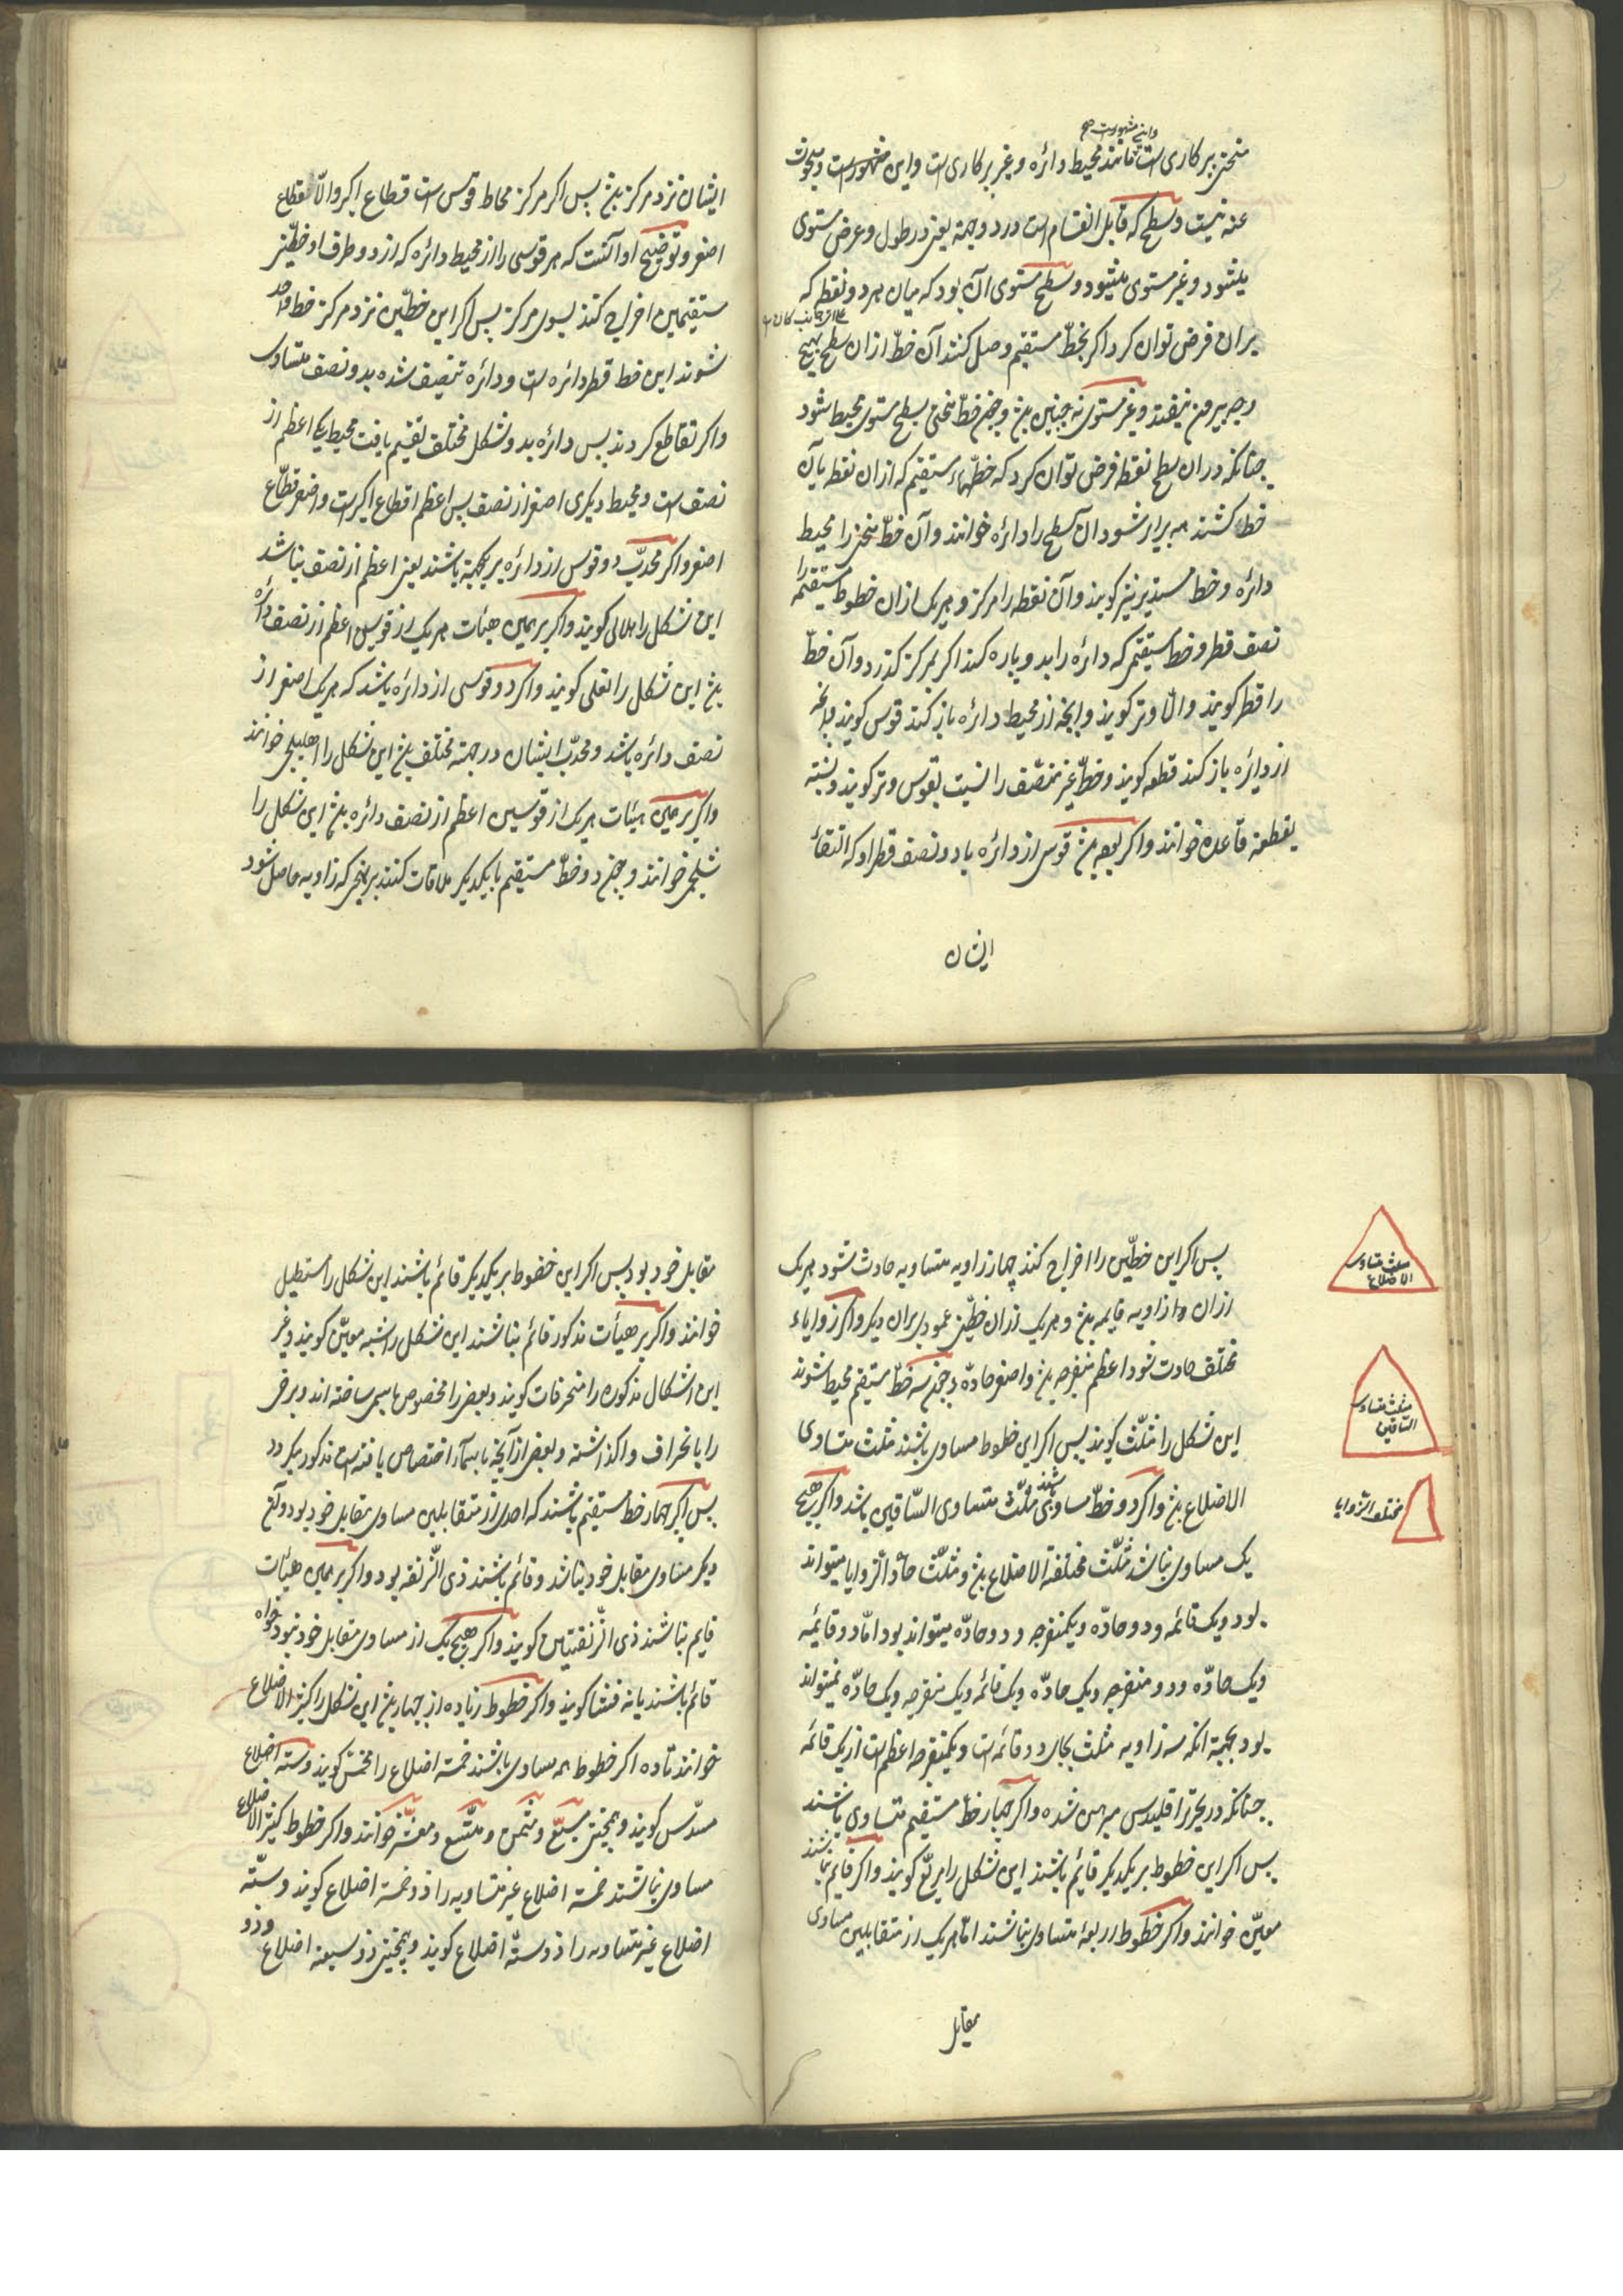 وانچه مشهورست صح
منحنی پرکاری است مانند محیط دائره و غیر پرکاری است و این مشهورست و مبحوث
عنه نیست و سطح که قابل انقسام است در دو جهة یعنی در طول و عرض مستوی
میشود و غیر مستوی میشود و سطح مستوی آن بود که میان هر دو نقطه که
بران فرض توان کرد اکر بخطّ مستقیم وصل کنند آن خطّ ازان سطح بهیچ
وجه بیرون نیفتد و غیر مستوی نه چنین بود و چون خطّ منحنی بسطح مستوی محیط شود
چنانکه دران سطح نقطه فرض توان کرد که خطّهاء مستقیم که ازان نقطه بآن
خط کشند همه برابر شود آن سطح را دائره خوانند و آن خطّ منحنی را محیط
دائره و خط مستدیر نیز کویند و آن نقطه را مرکز و هر یک ازان خطوط مستقیمه را
نصف قطر و خط مستقیم که دائره را بدو پاره کند اکر بمرکز کذرد و آن خطّ
را قطر کویند و الّا وتر کویند و آنچه از محیط دائره باز کند قوس کویند و آنچه
از دائره باز کند قطعه کویند و خطّ غیر منصّف را نسبت بقوس وتر کویند و نسبة
بقطعة قاعده خوانند و اکر قوس از دائره با دو نصف قطر او که التقاء
ایشان
ایشان نزد مرکز بود پس اکر مرکز محاط قوس است قطاع اکبر و الّا قطاع
اصغر و توضیح او آنست که هر قوسی را از محیط دائره که از دو طرف او خطّین
مستقیمین اخراج کنند بسوی مرکز پس اکر این خطّین نزد مرکز خط واحد
شوند این خط قطر دائره است و دائره تنصیف شده بدو نصف متساوی
و اکر تقاطع کردند پس دائره بدو شکل مختلف تقسیم یافت محیط یکی اعظم از
نصف است و محیط دیکری اصغر از نصف پس اعظم قطاع اکبر است و اصغر قطاع
اصغر و اکر محدّب دو قوس از دائره بر یکجهة باشند یعنی اعظم از نصف نباشد
این شکل را هلالی کویند و اکر بر همین هیئات هر یک از قوسین اعظم از نصف دائره
بود این شکل را نعلی کویند و اکر دو قوسی از دائره باشد که هر یک اصغر از
نصف دائره باشد و محدّب ایشان در جهة مختلف بود این شکل را اهلیلجی خوانند
و اکر بر همین هیئات هر یک از قوسین اعظم از نصف دائره بود این شکل را
شلجمی خوانند و چون دو خطّ مستقیم با یکدیکر ملاقات کنند بر نهجی که زاویه حاصل شود
پس اکر این خطّین را اخراج کنند چهار زاویه متساویه حادث شود هر یک
ازان زاویه قایمه بود و هر یک ازان خطّین عمودی بران دیکر و اکر زوایاء
مختلف حادث شود اعظم منفرجه بود و اصغر حادّه و چون سه خطّ مستقیم محیط شوند
این شکل را مثلّث کویند پس اکر این خطوط مساوی باشند مثلث متساوی
الاضلاع بود و اکر دو خطّ مساوی باشند مثلّث متساوی السّاقین باشد و اکر هیچ
یک مساوی نباشد مثلّث مختلفة الاضلاع بود و مثلّث حادّ الزوایا میتواند
بود و یک قائمه و دو حادّه و یکمنفرجه و دو حادّه میتواند بود امّا دو قایمه
و یک حادّه و دو منفرجه و یک حادّه و یک قائمه و یک منفرجه و یک حادّه نمیتواند
بود بجهة آنکه سه زاویه مثلث بجای دو قائمه است و یکمنفرجه اعظم است از یک قائمه
چنانکه در تحریر اقلیدس مبرهن شده و اکر چهار خطّ مستقیم متساوی باشند
پس اکر این خطوط بر یکدیکر قایم باشند این شکل را مربّع کویند و اکر قایم نباشند
معیّن خوانند و اکر خطوط اربعه متساوی نباشند امّا هر یک از متقابلین مساوی
مقابل
مثلث متساوی
الاضلاع
مثلث متساوی
الساقین
مختلف الزوایا
مقابل خود بود پس اکر این خطوط بر یکدیکر قائم باشند این شکل را مستطیل
خوانند و اکر بر هیأت مذکور قائم نباشند این شکل را شبه معیّن کویند و غیر
این اشکال مذکوره را منحرفات کویند و بعض را مخصوص باسمی ساخته اند و برخی
را بانحراف واکذاشته و بعض از آنچه باسماء اختصاص یافته است مذکور میکردد
پس اکر چهار خط مستقیم باشند که احدی از متقابلین مساوی مقابل خود بود و آن
دیکر مساوی مقابل خود نباشد و قائم باشند ذی الزنقه بود و اکر بر همین هیئات
قایم نباشند ذی الزنقتین کویند و اکر هیچ یک از مساوی مقابل خود نبود خواه
قائم باشند یا نه قثا کویند و اکر خطوط زیاده از چهار بود این شکل را کثیر الاضلاع
خوانند تا ده اکر خطوط همه مساوی باشند خمسة اضلاع را مخمّس کویند و ستة اضلاع
مسدّس کویند و همچنین مسبّع و مثمّن و متّسع و معشّر خوانند و اکر خطوط کثیر الاضلاع
مساوی نباشند خمسة اضلاع غیر متساویه را ذو خمسة اضلاع کویند و ستّه
اضلاع غیر متساویه را ذو ستّة اضلاع کویند و همچنین ذو سبعة اضلاع و ذو